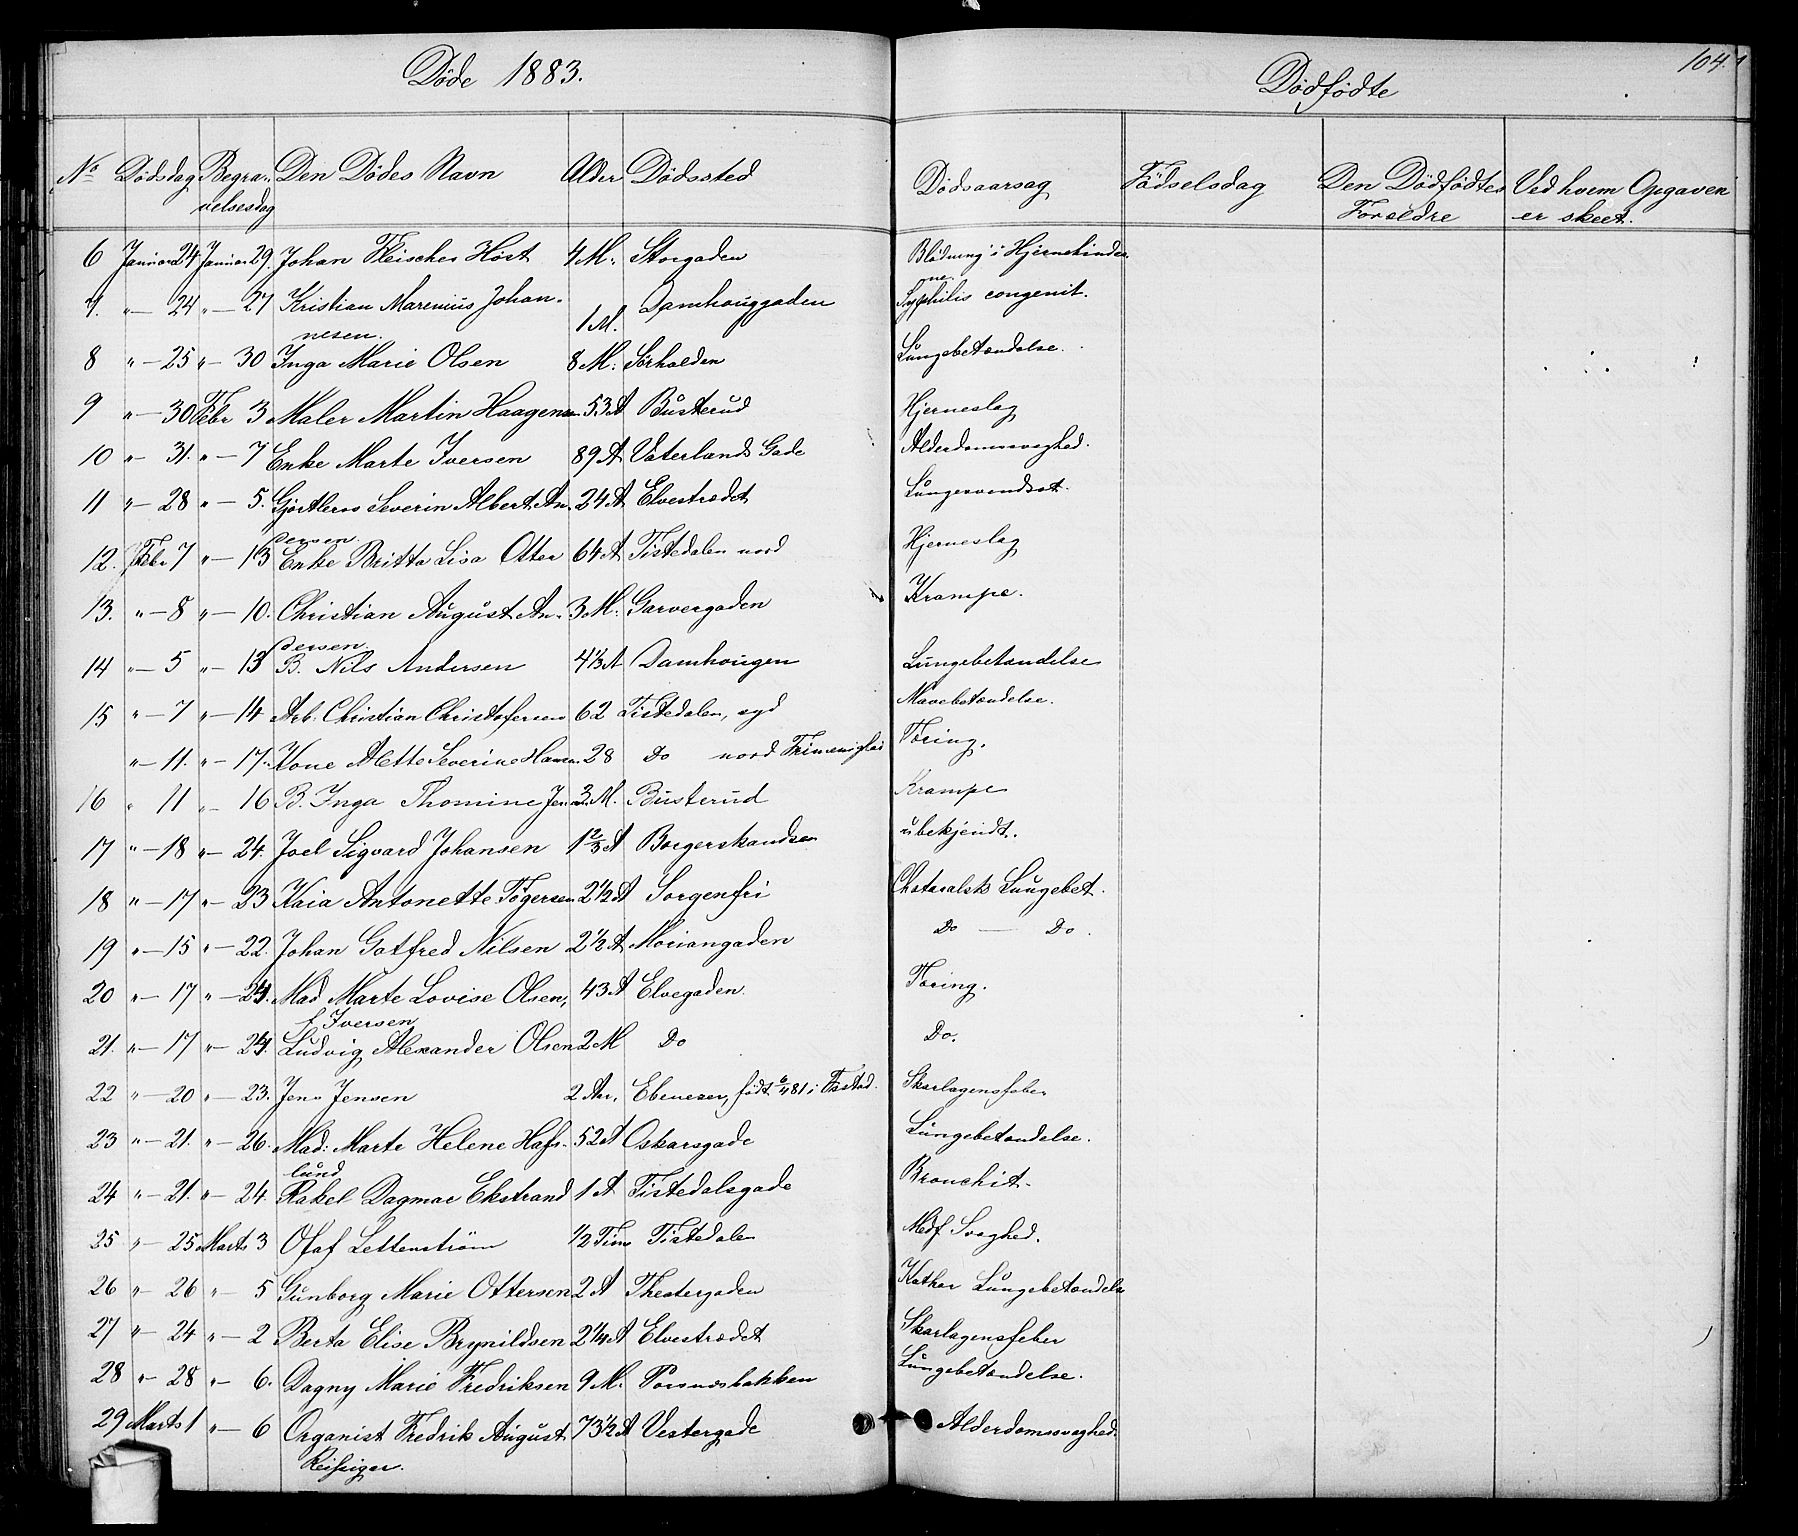 Døde 1883.
Dødfødte
104.
No Dødsdag Begra- Den Dødes Navn Alder Dødssted Dødsaarsag Fødselsdag Den Dødfødtes Ved hvem Opgaven
velsesdag Forældre er skeet.
6 Januar 24 Januar 29. Johan Fleischer Høst 4 M. Storgaden Blødning i Hjernehinder
ne.
7. " — 24 " — 27 Kristian Marenius Johan- 1 M. Damhouggaden Syphilis congenit.
nesen.
8 " — 25 " — 30 Inga Marie Olsen 8 M. Sørhalden Lungebetændelse.
9 " — 30 Febr 3 Maler Martin Haagensen 53 A Busterud Hjerneslag
10 " — 31. " — 7 Enke Marte Iversen 89 A Vaterlands Gade Alderdomssvaghed.
11 " — 28 " — 5. Gjørtlersv Severin Albert An- 24 A Elvestrædet Lungesvindsot.
dersen
12. Febr 7 " — 13 Enke Britta Lisa Otter 64 A Tistedalen nord Hjerneslag
13. " — 8 " — 10. Christian August An- 3 M. Garvergaden Krampe.
dersen
14 " — 5 " — 13 B. Nils Andersen 4 1/3 A Damhougen Lungebetændelse
15 " — 7 " — 14 Arb. Christian Christofersen 62 Tistedalen, syd Mavebetændelse.
" — 11. " — 17. Kone Mette Severine Hansen 28 Do nord Frimenighed Tæring.
16 " 11 " — 16 B. Inga Thomine Jensen 3 M. Busterud Krampe
17 " — 18 " — 24. Joel Sigvard Johansen 1 2/3 A Borgerskandsen ubekjendt.
18 " — 17 " — 23 Kaia Antonette Tøgersen 2 1/2 A Sorgenfri Chataralsk Lungebet.
19 " — 15 " — 22. Johan Gotfred Nilsen 2 1/2 A Moriangaden Do — Do.
20 " — 17 " — 24. Mad Marte Lovise Olsen, 43 A Elvegaden. Tæring.
f Iversen
21. " — 17 " — 24. Ludvig Alexander Olsen 2 M Do Do.
22 " — 20 " — 23. Jens Jensen 2 Aar. Ebenezer, født 6/4 81 i Fstad. Skarlagensfeber
23 " — 21. " — 26. Mad: Marte Helene Hafs- 52 A Oskarsgade Lungebetændelse.
lund
24 " — 21. " — 24. Rakel Dagmar Ekstrand 1 A Tistedalsgade Bronchit.
25 " — 25 Marts 3 Olaf Lettenstrøm 1/2 Time Tistedalen Medf Svaghed.
26 " — 26 " — 5 Gunborg Marie Ottersen 2 A Theatergaden Kathar Lungebetændelse
27 " — 24 " — 2 Berta Elise Brynildsen 2 1/4 A Elvestrædet Skarlagensfeber
28 " — 28 " — 6. Dagny Marie Fredriksen 9 M. Porsnæsbakken Lungebetændelse.
29 Marts 1 " — 6 Organist Fredrik August 73 1/2 A Vestergade Alderdomssvaghed.
Reissiger.